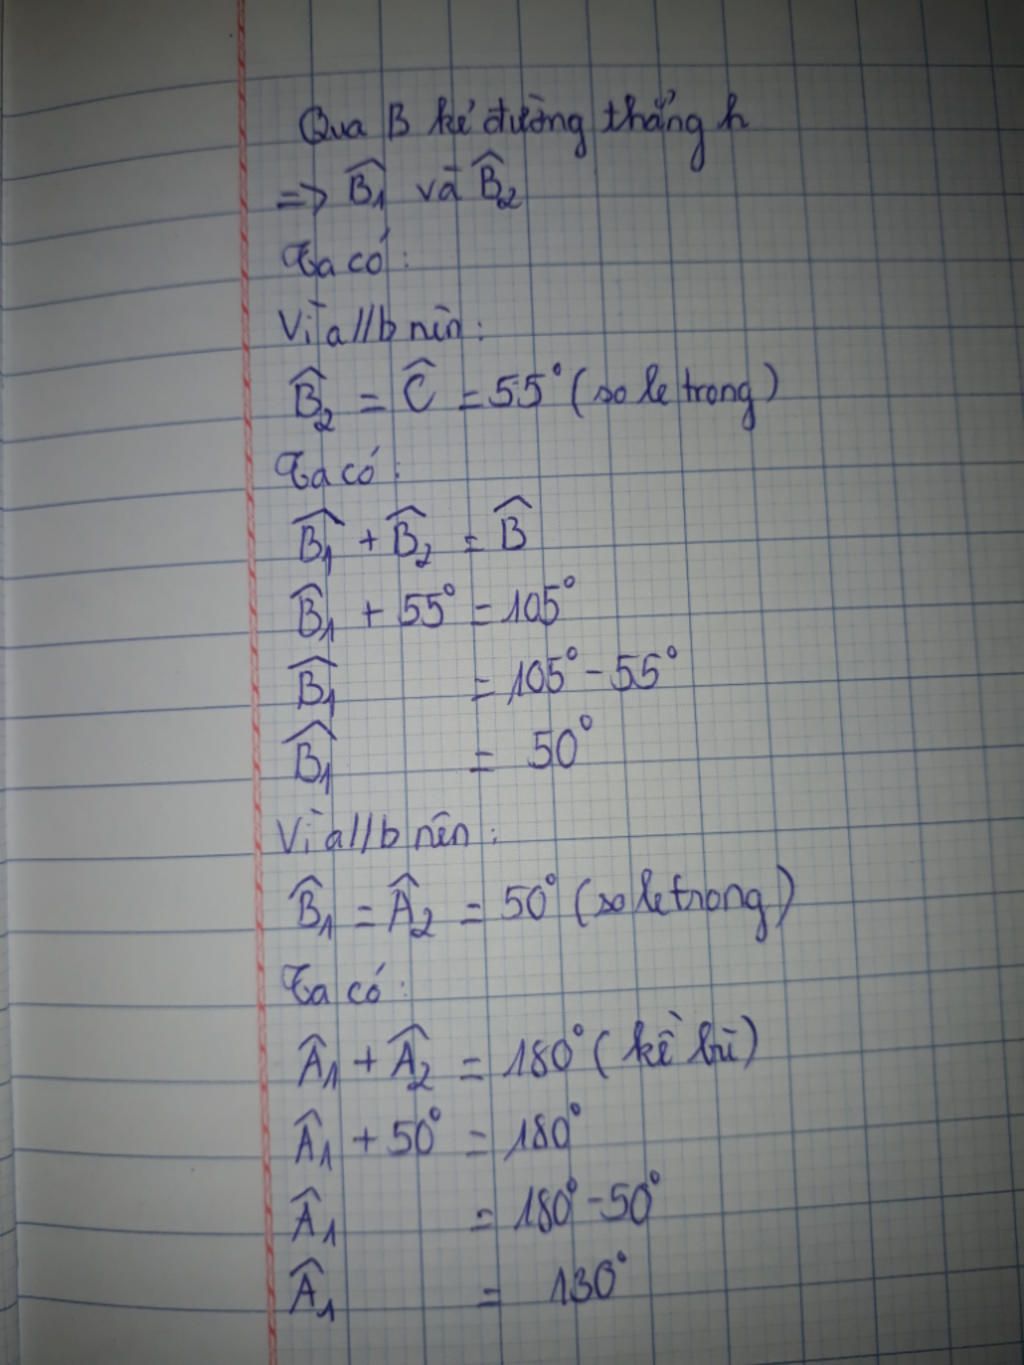 Qua B kẻ đường thẳng h
=> B̂₁ và B̂₂
Ta có:
Vì a//b nên:
B̂₂ = Ĉ = 55° (so le trong)
Ta có:
B̂₁ + B̂₂ = B̂
B̂₁ + 55° = 105°
B̂₁ = 105° - 55°
B̂₁ = 50°
Vì a//b nên:
B̂₁ = Â₂ = 50° (so le trong)
Ta có:
Â₁ + Â₂ = 180° (kề bù)
Â₁ + 50° = 180°
Â₁ = 180° - 50°
Â₁ = 130°